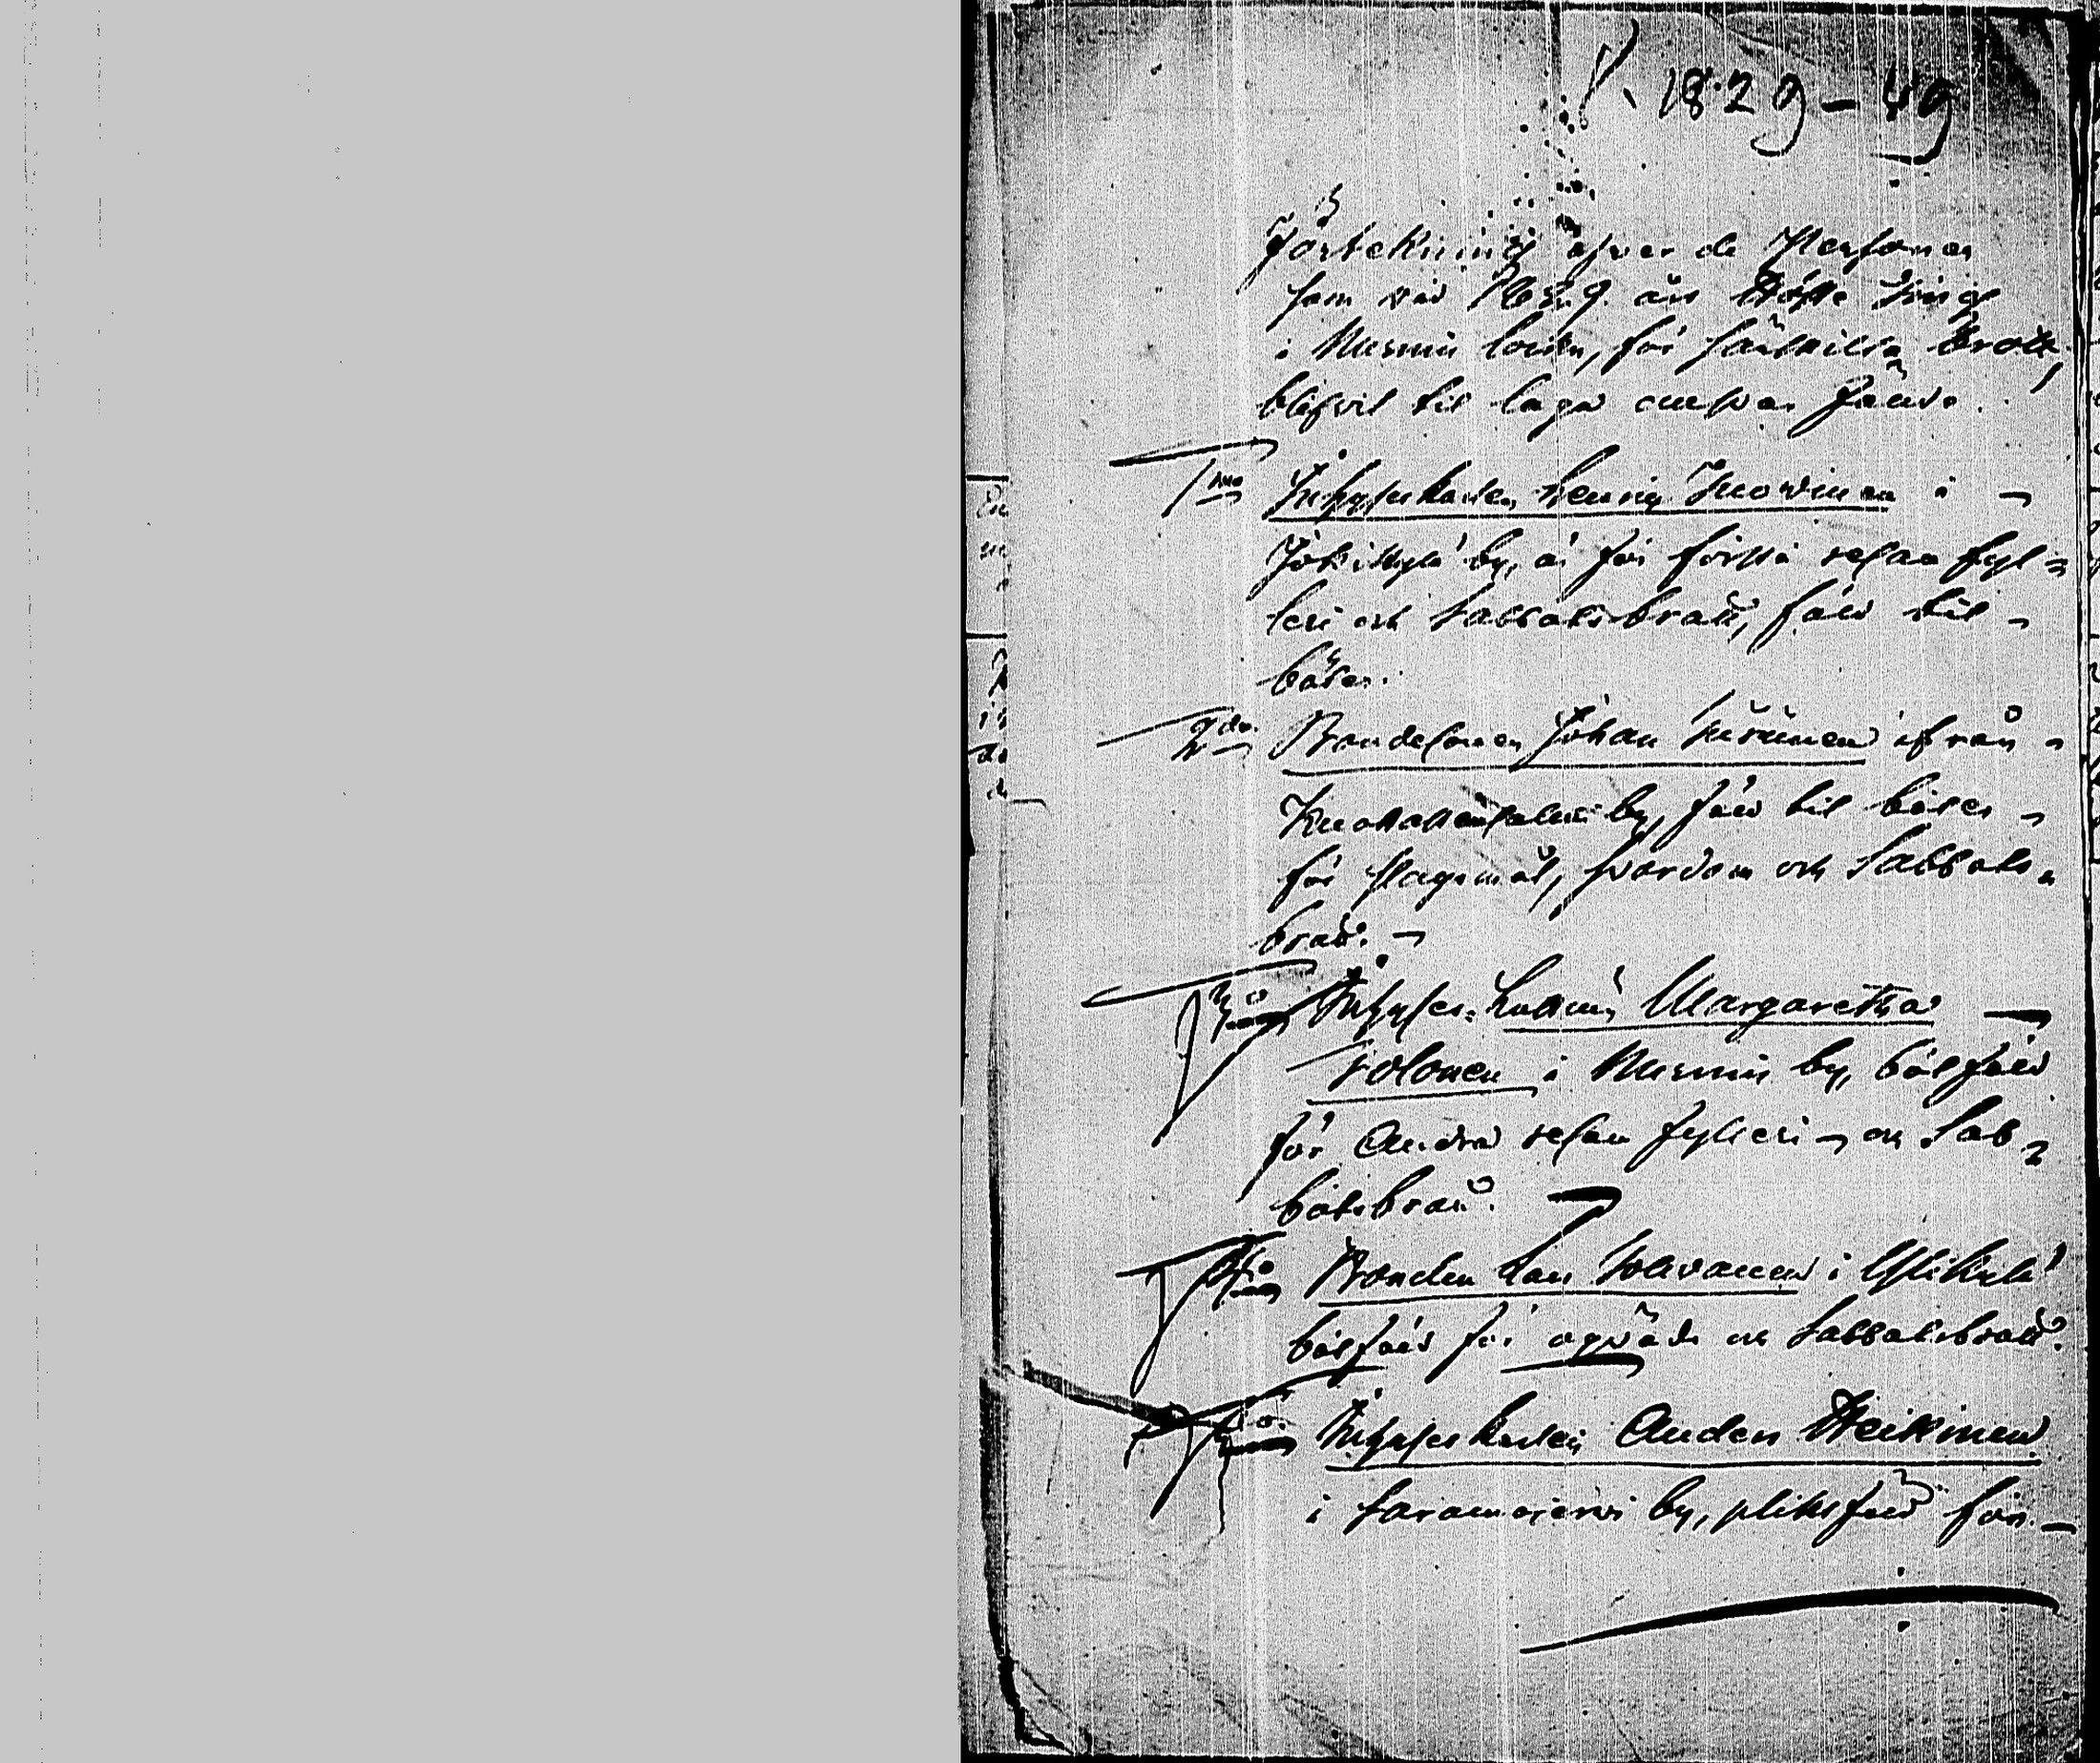 1829-49
Förtekning öfver de Personer
som vid 1829 års Höste Ting
i Nurmis Socken, för särskilta brott,
blifvit til laga answar fälde.
1mo Inhyseskarlen Henric Tuovinen i
Jokikylä by, är för första resan fyl=
leri och Sabbatsbrott, fäld til
böter.
2do Bondesonen Johan Turunen ifrån
by, fäld til böter
för slagsmål, svordom och Sabbats
brott.
3tio Inhyses Margaretha
Tolonen i Nurmis by, bötfäld
för Andra resan fylleri och Sab=
batsbrott.
4to Bonden Lars i
bötfäld för oqväde och Sabbatsbrott.
5to Inhyseskarlen Anders Heikinen
i Saramojervi by, pliktfäld för